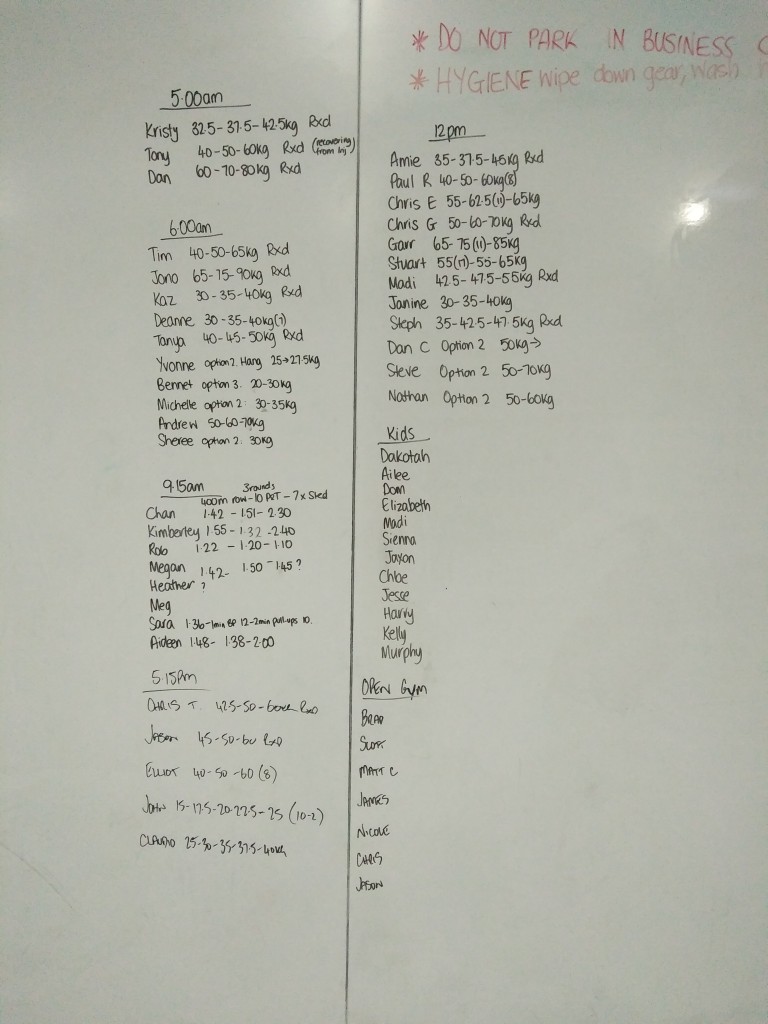 * DO NOT PARK IN BUSINESS
* HYGIENE wipe down gear, wash
5:00am
Kristy 32.5-37.5-42.5kg Rxd
Tony 40-50-60kg Rxd (recovering from inj)
Dan 60-70-80kg Rxd
6:00am
Tim 40-50-65kg Rxd
Jono 65-75-90kg Rxd
Kaz 30-35-40kg Rxd
Deanne 30-35-40kg(7)
Tanya 40-45-50kg Rxd
Yvonne option 2. Hang 25→27.5kg
Bennet option 3. 20-30kg
Michelle option 2: 30-35kg
Andrew 50-60-70kg
Sheree option 2: 30kg
9:15am 3 rounds
400m row-10 P&T-7x Sled
Chan 1.42-1.51-2.30
Kimberley 1.55-1.32-2.40
Rob 1.22-1.20-1.10
Megan 1.42-1.50-1.45?
Heather ?
Meg
Sara 1.36-1min BP 12-2min pull-ups 10.
Aideen 1.48-1.38-2.00
5:15pm
CHRIS T. 42.5-50-60kg RXD
JASON 45-50-60 RXD
ELLIOT 40-50-60 (8)
JOHN 15-17.5-20-22.5-25 (10-2)
CLAUDIO 25-30-35-37.5-40kg
12pm
Amie 35-37.5-45kg Rxd
Paul R 40-50-60kg(8)
Chris E 55-62.5(11)-65kg
Chris G 50-60-70kg Rxd
Garr 65-75(11)-85kg
Stuart 55(17)-55-65kg
Madi 42.5-47.5-55kg Rxd
Janine 30-35-40kg
Steph 35-42.5-47.5kg Rxd
Dan C Option 2 50kg→
Steve Option 2 50-70kg
Nathan Option 2 50-60kg
Kids
Dakotah
Ailee
Dom
Elizabeth
Madi
Sienna
Jaxon
Chloe
Jesse
Harvy
Kelly
Murphy
OPEN Gym
BRAD
SCOTT
MATT C
JAMES
NICOLE
CHRIS
JASON